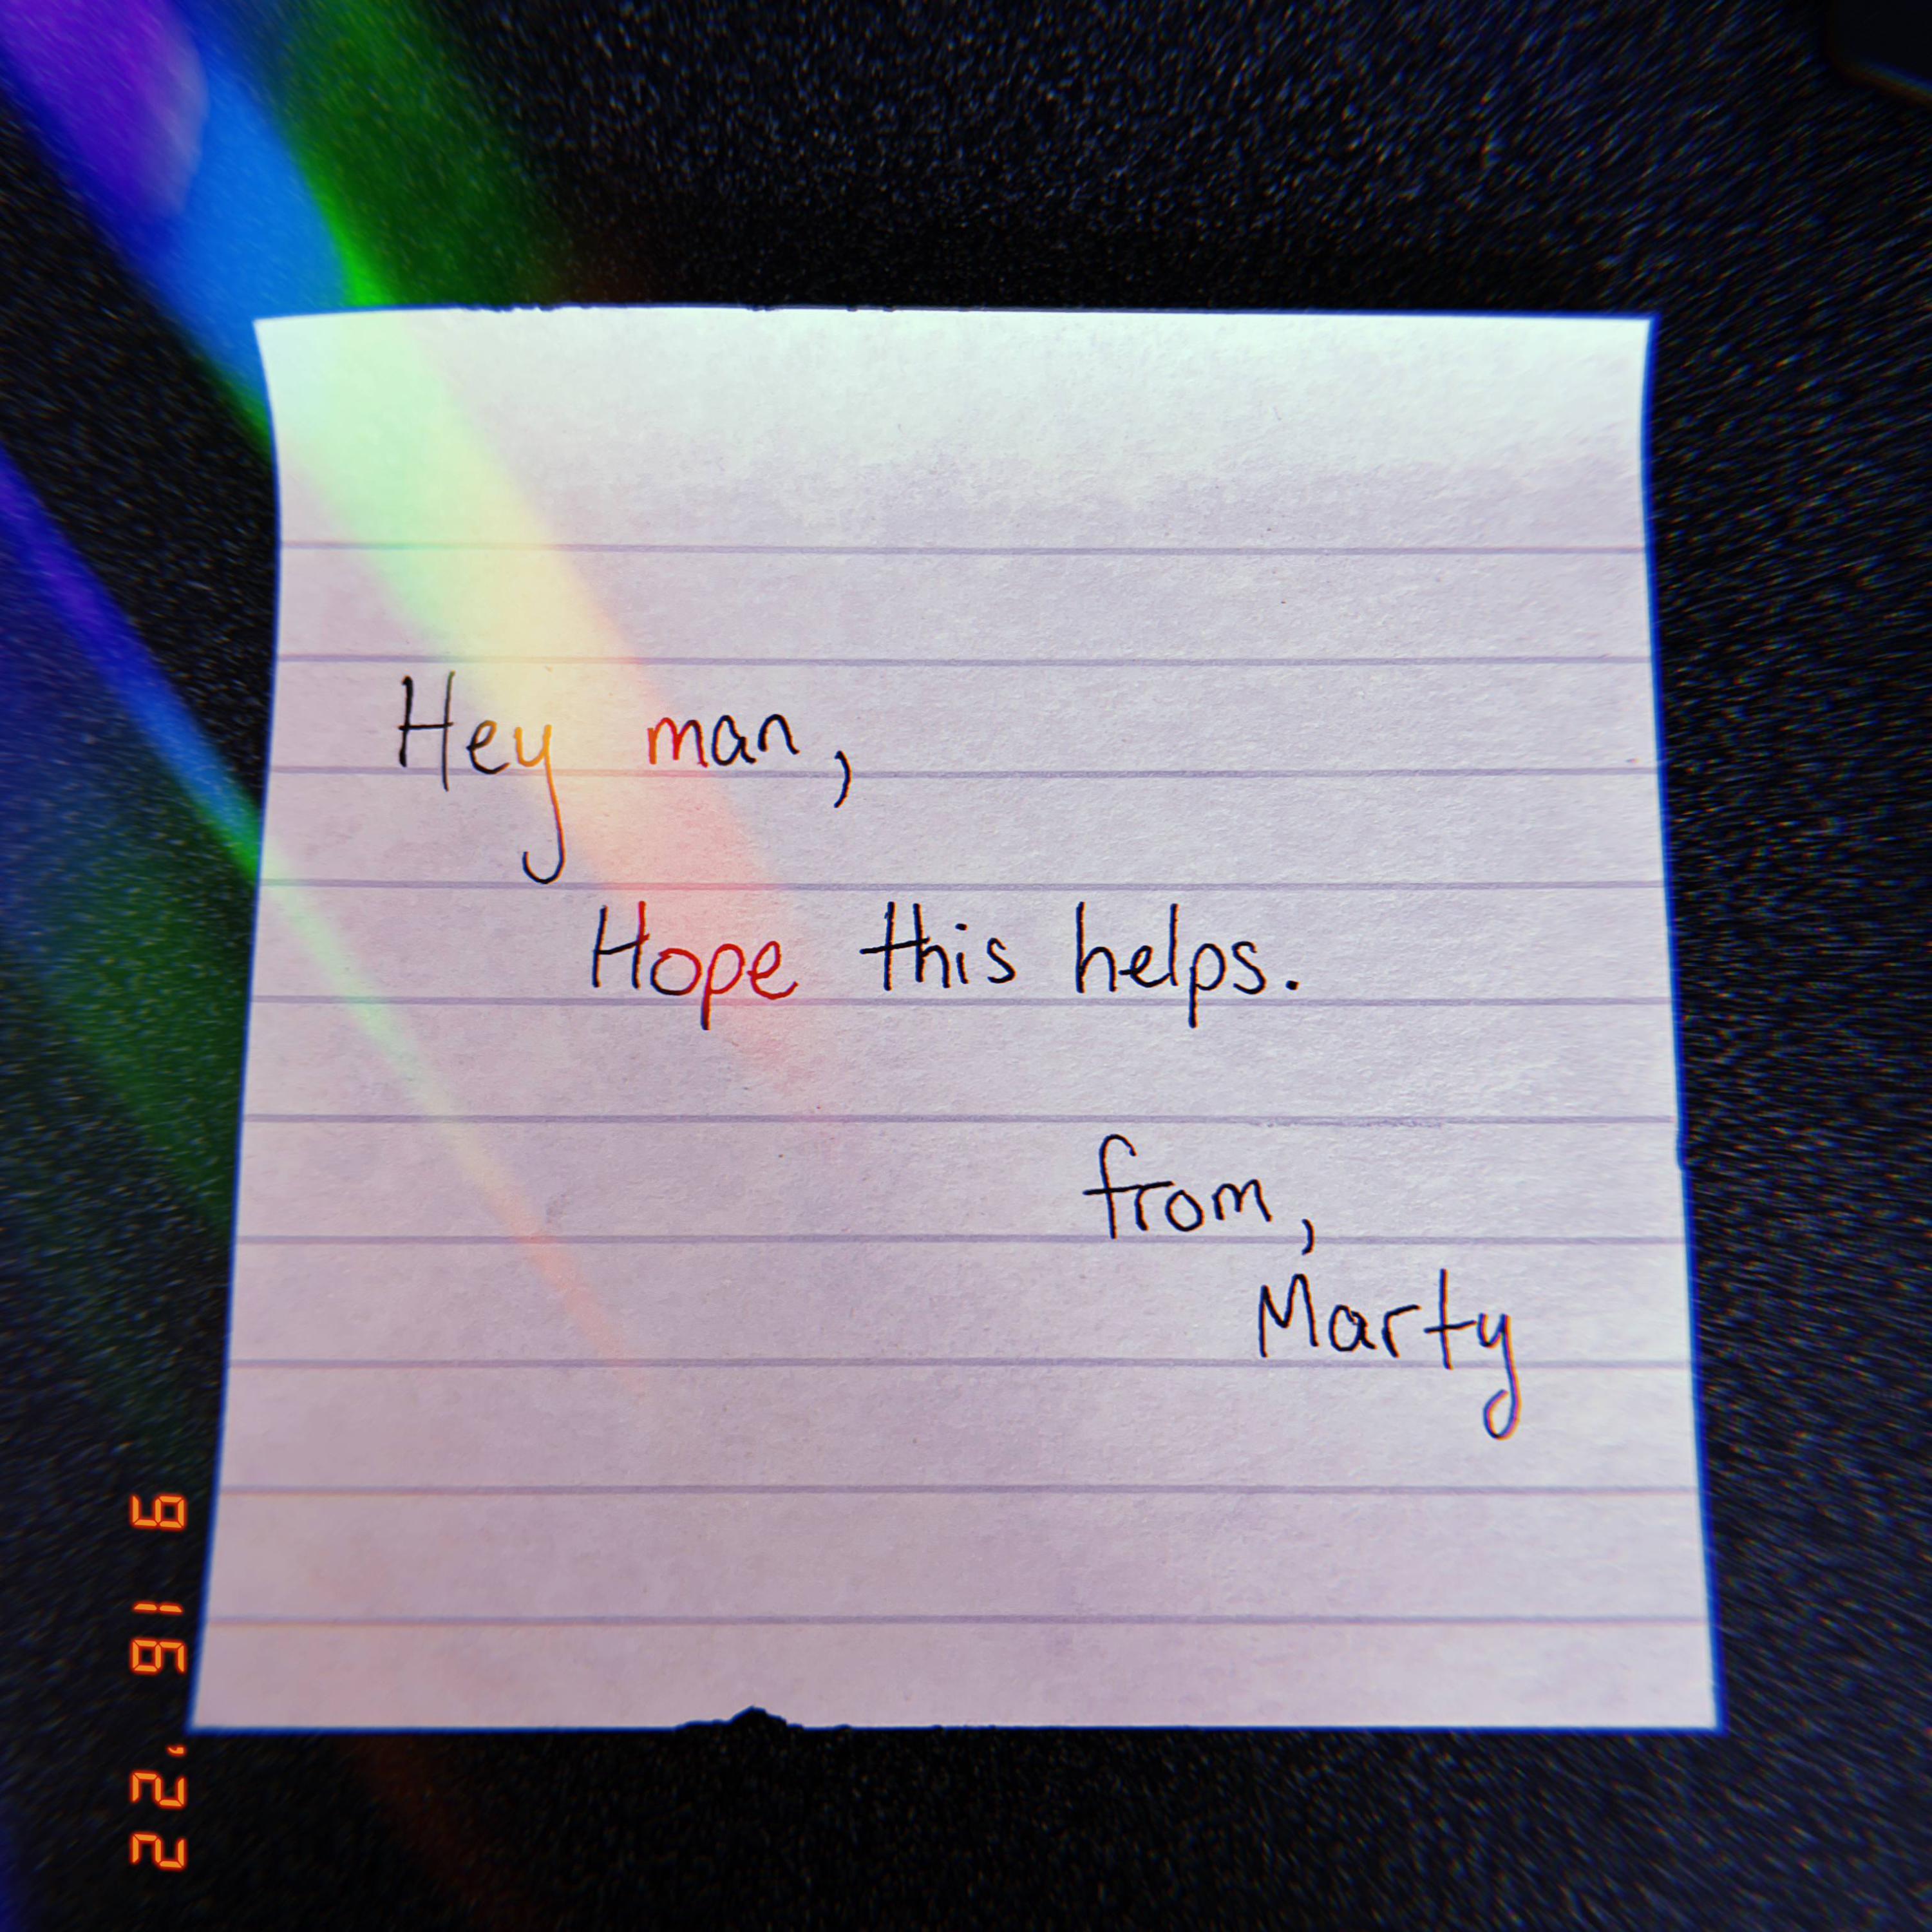 Hey man,
Hope this helps.
from,
Marty
9 16 '22